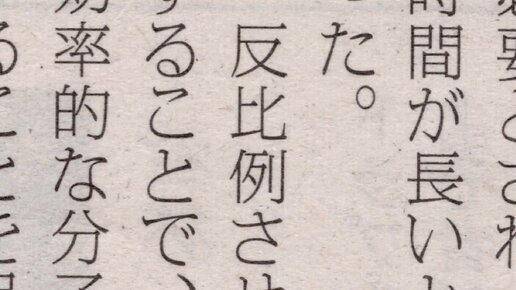 要とされ
時間が長いか
た。
反比例させ
することで、
効率的な分子
ることを